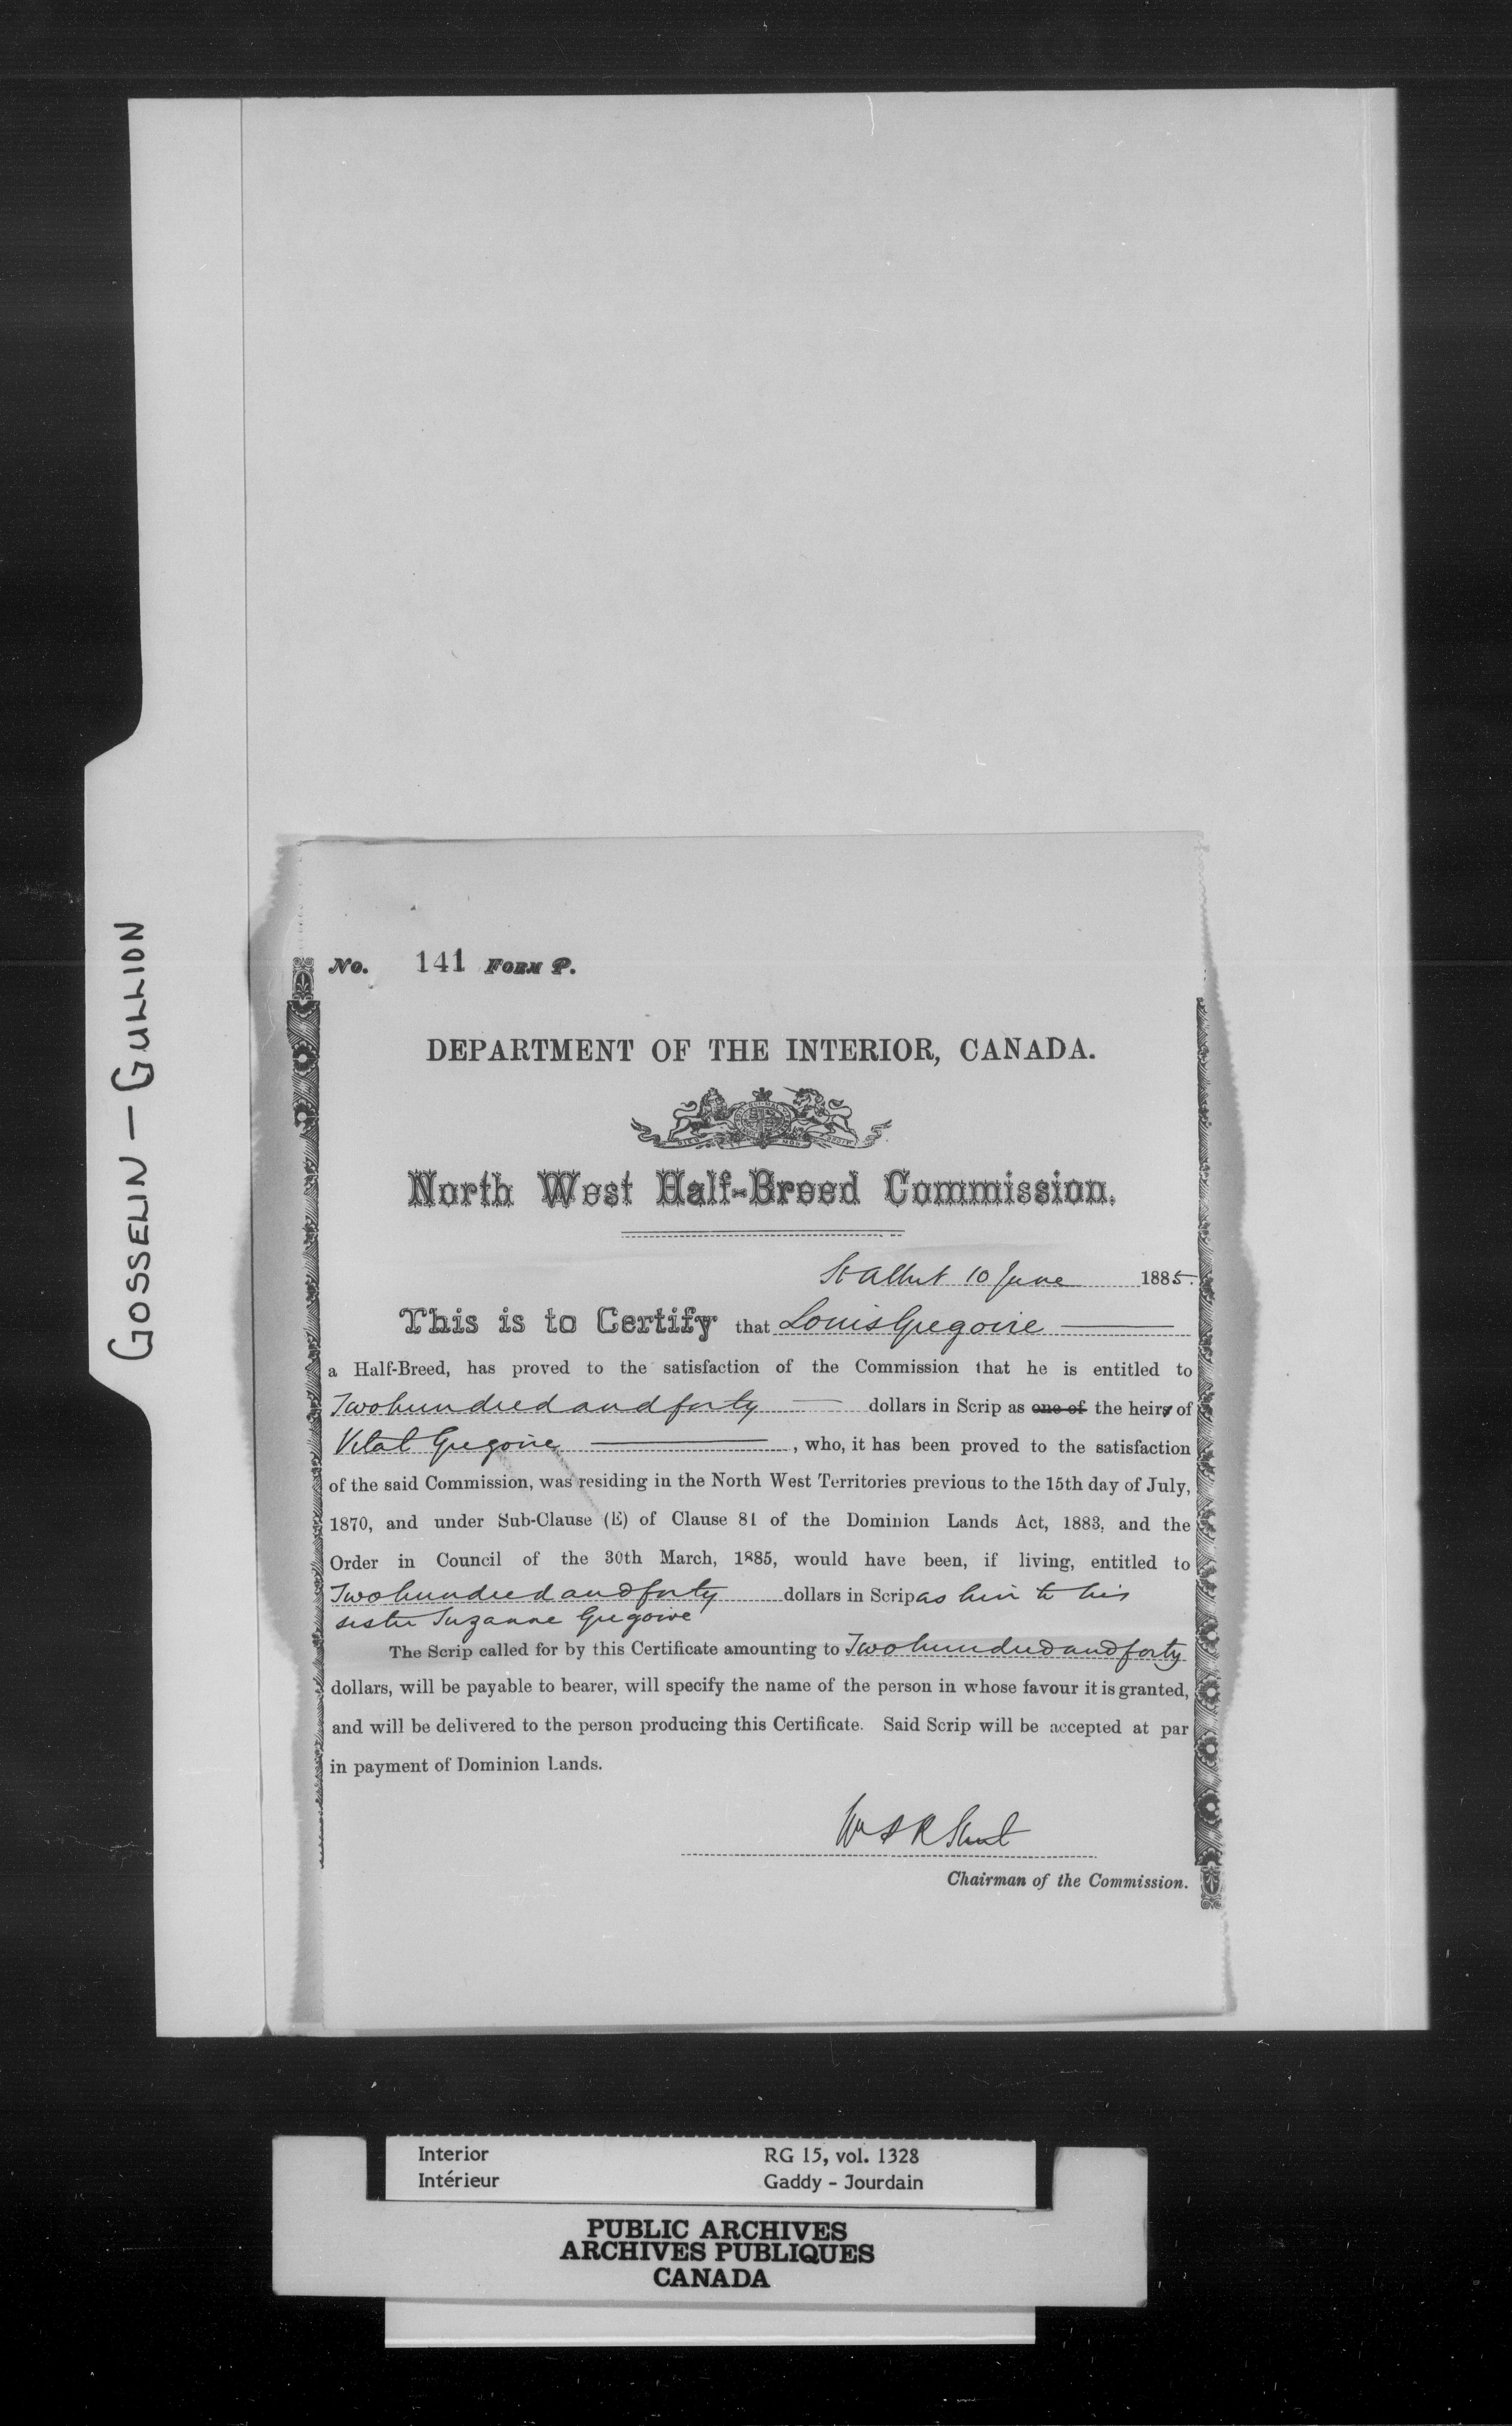 GOSSELIN - GULLION
No. 141 FORM P.
DEPARTMENT OF THE INTERIOR, CANADA.
North West Half-Breed Commission.
St Albert 10 June 1885.
This is to Certify that Louis Gregoire
a Half-Breed, has proved to the satisfaction of the Commission that he is entitled to
Two hundred and forty dollars in Scrip as one of the heirs of
Vital Gregoire, who, it has been proved to the satisfaction
of the said Commission, was residing in the North West Territories previous to the 15th day of July,
1870, and under Sub-Clause (E) of Clause 81 of the Dominion Lands Act, 1883, and the
Order in Council of the 30th March, 1885, would have been, if living, entitled to
Two hundred and forty dollars in Scrip as heir to his
sister Suzanne Gregoire
The Scrip called for by this Certificate amounting to Two hundred and forty
dollars, will be payable to bearer, will specify the name of the person in whose favour it is granted,
and will be delivered to the person producing this Certificate. Said Scrip will be accepted at par
in payment of Dominion Lands.
Chairman of the Commission.
Interior RG 15, vol. 1328
Intérieur Gaddy - Jourdain
PUBLIC ARCHIVES
ARCHIVES PUBLIQUES
CANADA